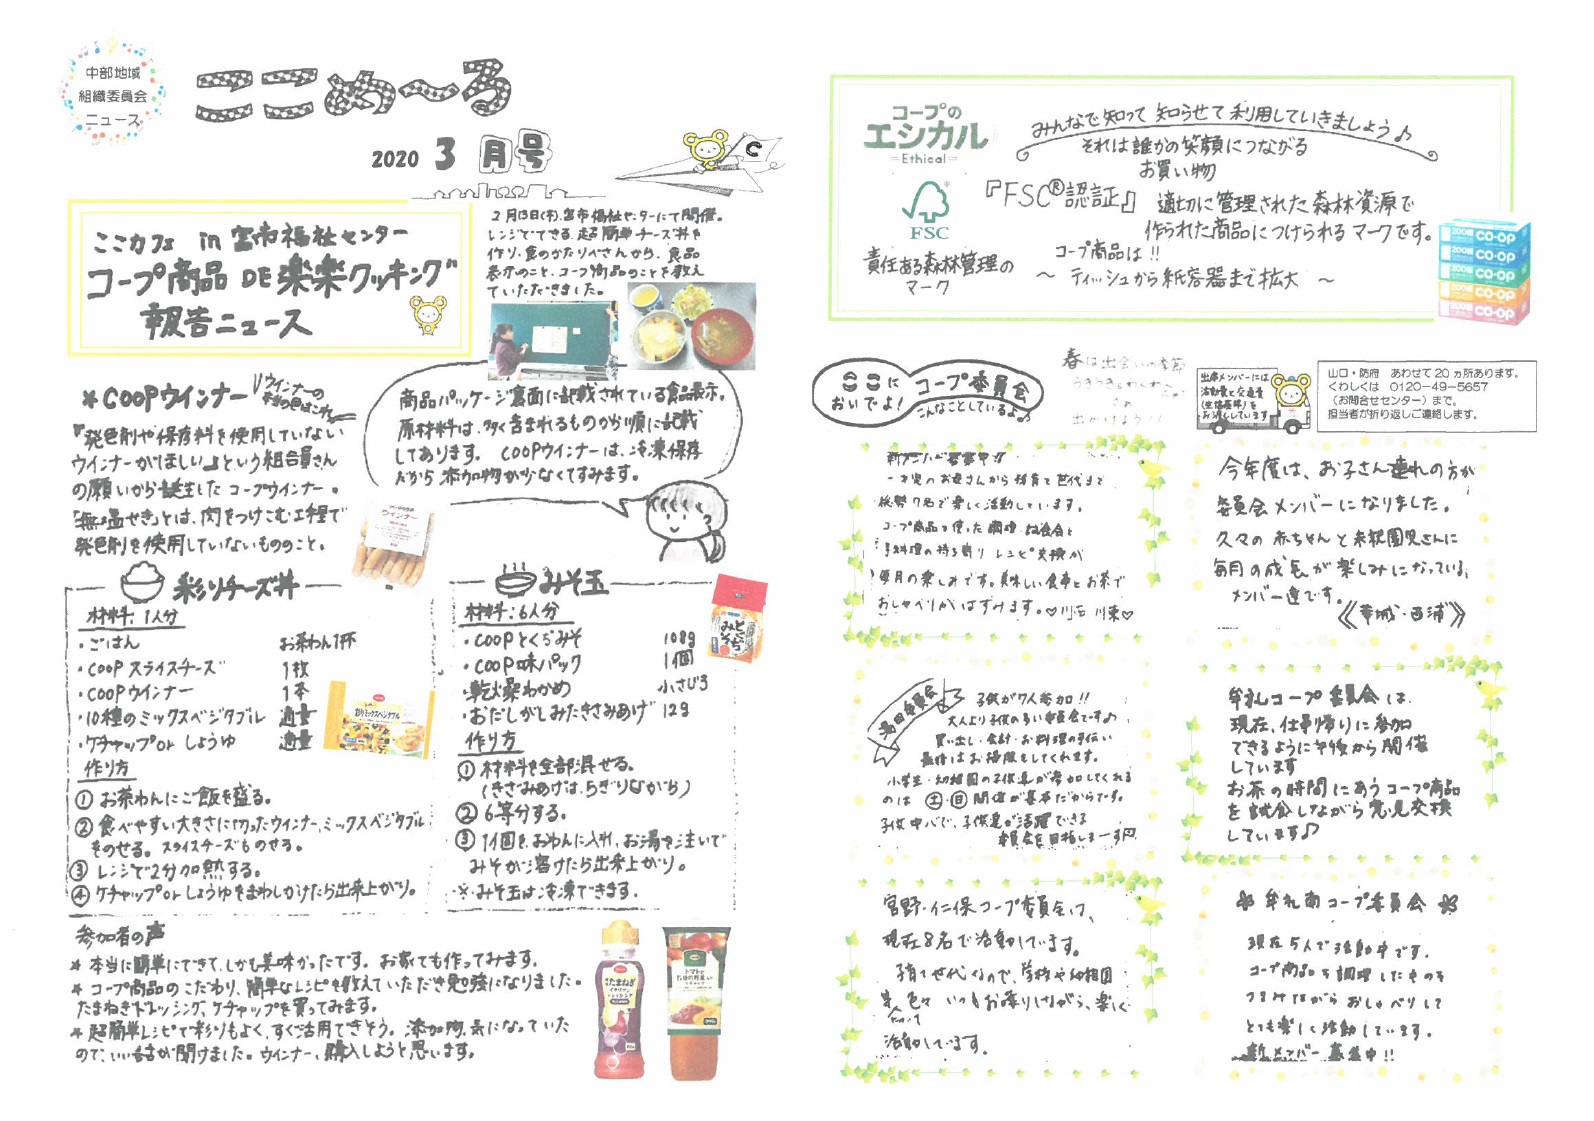 中部地域
組織委員会
ニュース
ここめ〜る
2020 3月号
C
ここカフェ in 宮市福祉センター
コープ商品 DE 楽楽クッキング
報告ニュース
2月13日(木)宮市福祉センターにて開催。
レンジでできる超簡単チーズ丼を
作り、食のかたりべさんから、食品
表示のこと、コープ商品のことを教え
ていただきました。
*COOPウインナー
ウインナーの
本当の色はこれ
『発色剤や保存料を使用していない
ウインナーがほしい』という組合員さん
の願いから誕生したコープウインナー。
「無塩せき」とは、肉をつけこむ工程で
発色剤を使用していないもののこと。
商品パッケージ裏面に記載されている食品表示。
原材料は、多く含まれるものから順に記載
してあります。COOPウインナーは、冷凍保存
だから添加物が少なくてすみます。
ウインナー
彩りチーズ丼
材料:1人分
・ごはん お茶わん1杯
・COOPスライスチーズ 1枚
・COOPウインナー 1本
・10種のミックスベジタブル 適量
・ケチャップorしょうゆ 適量
作り方
① お茶わんにご飯を盛る。
② 食べやすい大きさに切ったウインナー、ミックスベジタブル
をのせる。スライスチーズものせる。
③ レンジで2分加熱する。
④ ケチャップorしょうゆをまわしかけたら出来上がり。
みそ玉
材料:6人分
・COOPとくぢみそ 108g
・COOP味パック 1個
・乾燥わかめ 小さじ3
・おだしがしみたきざみあげ 12g
作り方
① 材料を全部混ぜる。
(きざみあげは、ちぎりながら)
② 6等分する。
③ 1個をおわんに入れ、お湯を注いで
みそが溶けたら出来上がり。
※みそ玉は冷凍できます。
参加者の声
* 本当に簡単にできて、しかも美味かったです。お家でも作ってみます。
* コープ商品のこだわり、簡単なレシピを教えていただき勉強になりました。
たまねぎドレッシング、ケチャップを買ってみます。
* 超簡単レシピで彩りもよく、すぐ活用できそう。添加物、気になっていた
ので、いい話が聞けました。ウインナー、購入しようと思います。
コープの
エシカル
Ethical
みんなで知って 知らせて 利用していきましょう♪
それは誰かの笑顔につながる
お買い物
FSC
責任ある森林管理の
マーク
『FSC®認証』 適切に管理された森林資源で
作られた商品につけられるマークです。
コープ商品は!!
〜 ティッシュから紙容器まで拡大 〜
co-op
ここに
おいでよ!
コープ委員会
こんなことしているよ♪
春は出会いの季節
出席メンバーには
活動費と交通費
をお渡ししています
山口・防府 あわせて20ヵ所あります。
くわしくは 0120-49-5657
(お問合せセンター)まで。
担当者が折り返しご連絡します。
新メンバー募集中!!
一才児のお母さんから孫育て世代まで
総勢7名で楽しく活動しています。
コープ商品を使った調理・試食会と
手料理の持ち寄り レシピ交換が
毎月の楽しみです。美味しい食事とお茶で
おしゃべりがはずみます。♡
今年度は、お子さん連れの方が
委員会メンバーになりました。
久々の赤ちゃんと未就園児さんに
毎月の成長が楽しみになっている、
メンバー達です。
《華城・西浦》
湯田委員会
子供が7人参加!!
大人より子供の多い委員会です♪
買い出し・会計・お料理の手伝い
最後はお掃除もしてくれます。
小学生・幼稚園の子供達が参加してくれる
のは 土・日 開催が基本だからです。
子供中心で、子供達が活躍できる
委員会を目指しまーす
牟礼コープ委員会は、
現在、仕事帰りに参加
できるように午後から開催
しています
お茶の時間にあうコープ商品
を試食しながら意見交換
しています♪
宮野・仁保コープ委員会は、
現在8名で活動しています。
子育て世代なので、学校や幼稚園
等、色々いつもお喋りしながら、楽しく
活動しています。
牟礼南コープ委員会
現在5人で活動中です。
コープ商品を調理したものを
つまみながらおしゃべりして
とても楽しく活動しています。
新メンバー募集中!!